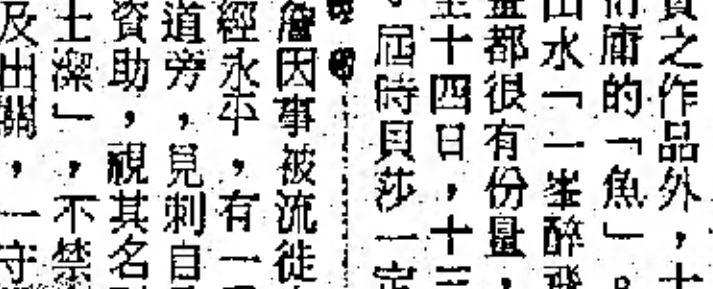 之作品外，
庸的「魚」。
山水「一峯醉飛
都很有份量，
十四日，十三
屆時貝莎一定
詹因事被流徙
經永平，有一
道旁，見刺自
資助，視其名
士潔」，不禁
及出關，一守